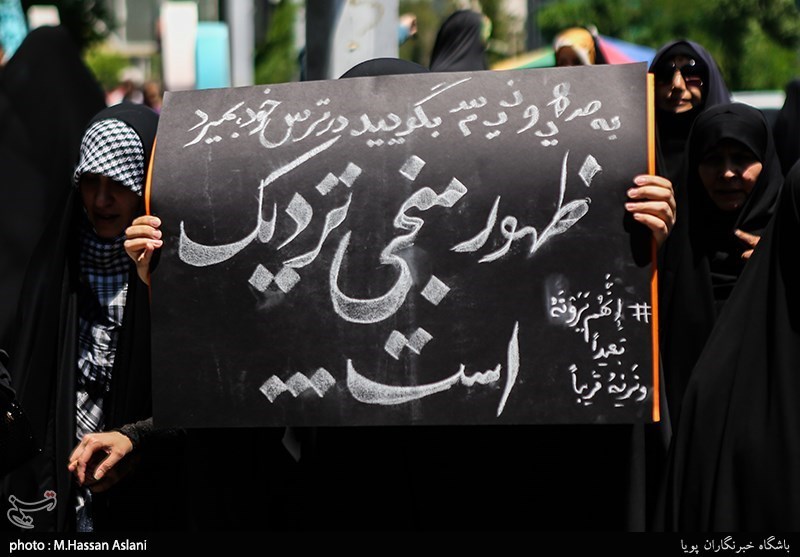 به صهیونیسم بگویید در ترس خود بمیرد
ظهور منجی نزدیک
است...
# إنَّهُم یَرَونَهُ
بَعیداً
و نَریٰهُ قَریباً
تسنیم
photo : M.Hassan Aslani
باشگاه خبرنگاران پویا